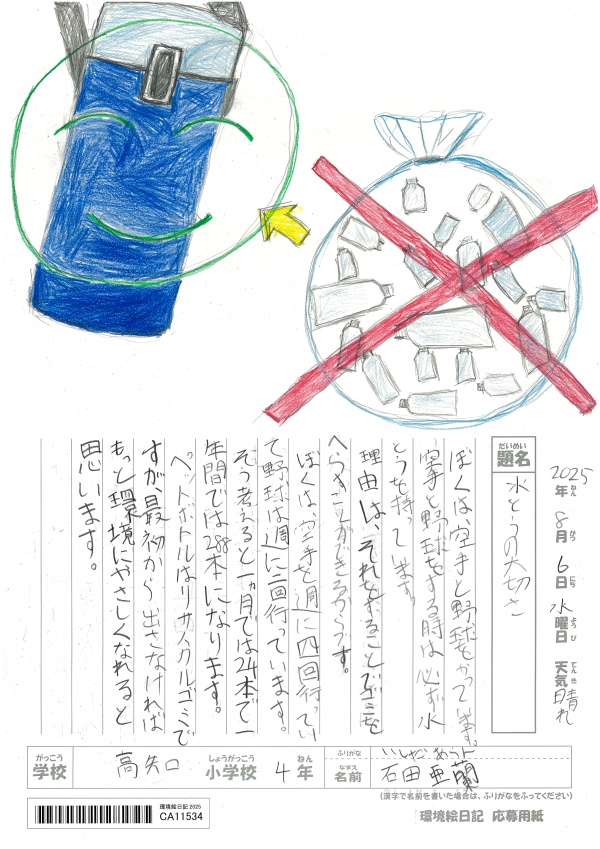 2025年8月6日水曜日 天気晴れ
ねん がつ にち ようび てんき
だいめい
題名
水とうの大切さ
ぼくは、空手と野球をやって
空手と野球をする時は必ず水
とうを持って います。
理由は、それをすることでゴミを
へらすことができるからです。
ぼくは、空手を週に四回行ってい
て野球は週に二回行っています。
そう考えると一ヵ月では24本で一
年間では288本になります。
ペットボトルはリサイクルゴミで
すが、最初から出さなければ
もっと環境にやさしくなれると
思います。
がっこう
学校
高矢口
しょうがっこう
小学校
4
ねん
年
ふりがな
いしだ あらん
なまえ
名前
石田 亜蘭
(漢字で名前を書いた場合は、ふりがなをふってください)
環境絵日記 2025
CA11534
環境絵日記 応募用紙